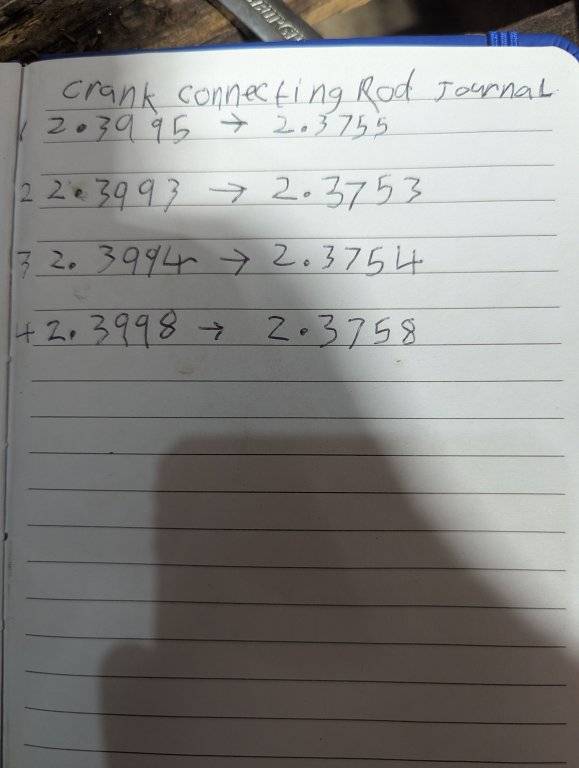 Crank Connecting Rod Journal
1 2.3995 → 2.3755
2 2.3993 → 2.3753
3 2.3994 → 2.3754
4 2.3998 → 2.3758